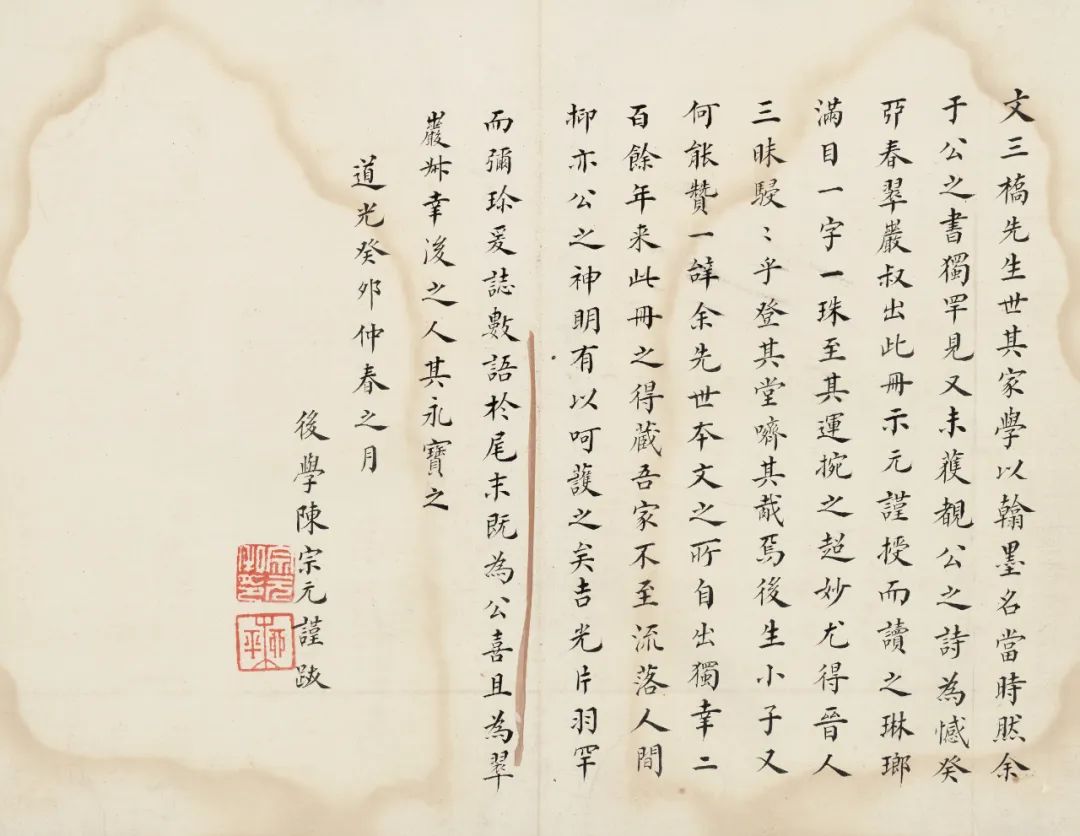 文三橋先生世其家學以翰墨名當時然余
于公之書獨罕見又未獲覩公之詩為憾癸
丣春翠巖叔出此冊示元謹授而讀之琳瑯
滿目一字一珠至其運捥之超妙尤得晉人
三昧駸〻乎登其堂嚌其胾焉後生小子又
何能贊一辭余先世本文之所自出獨幸二
百餘年来此冊之得藏吾家不至流落人間
抑亦公之神明有以呵護之矣吉光片羽罕
而彌珍爰誌數語於尾末既為公喜且為翠
巖叔幸後之人其永寶之
道光癸卯仲春之月
後學陳宗元謹跋